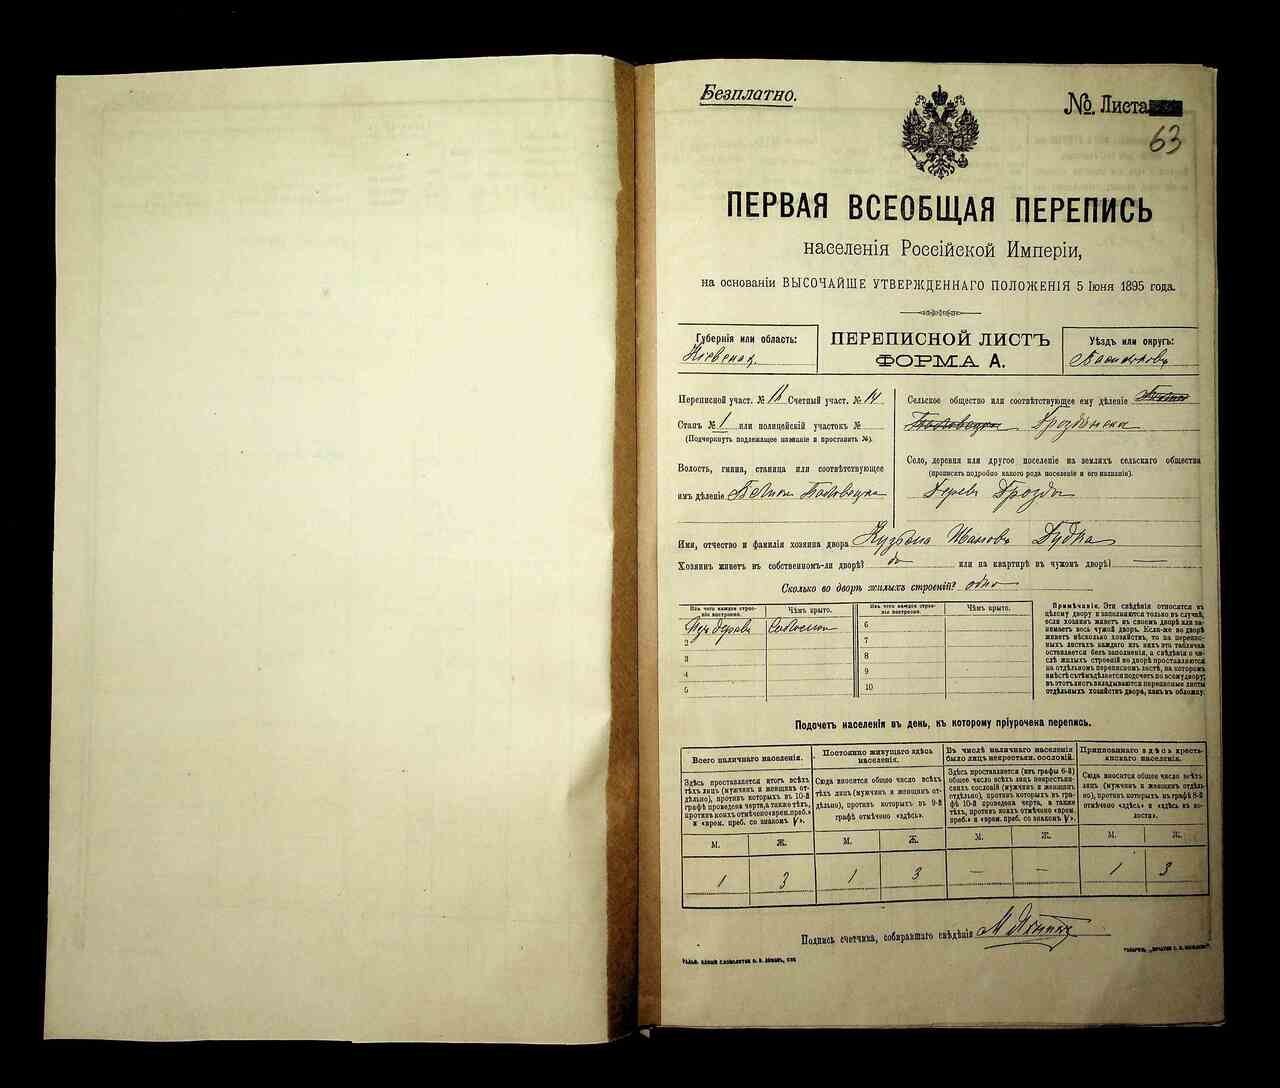 Безплатно.
№. Листа
63
ПЕРВАЯ ВСЕОБЩАЯ ПЕРЕПИСЬ
населенія Россійской Имперіи,
на основаніи ВЫСОЧАЙШЕ УТВЕРЖДЕННАГО ПОЛОЖЕНІЯ 5 Іюня 1895 года.
Губернія или область:
Кіевская
ПЕРЕПИСНОЙ ЛИСТЪ
ФОРМА А.
Уѣздъ или округъ:
Васильковъ
Переписной участ. № 18 Счетный участ. № 14
Станъ № 1 или полицейскій участокъ №
(Подчеркнуть подлежащее названіе и проставить №).
Волость, гмина, станица или соотвѣтствующее
имъ дѣленіе
Сельское общество или соотвѣтствующее ему дѣленіе
Село, деревня или другое поселеніе на земляхъ сельскаго общества
(прописать подробно какого рода поселеніе и его названіе).
Дерев Грозды
Имя, отчество и фамилія хозяина двора Кузьма Ивановъ Будка
Хозяинъ живетъ въ собственномъ-ли дворѣ? да или на квартирѣ въ чужомъ дворѣ? —
Сколько во дворѣ жилыхъ строеній? одно
Изъ чего каждое строе-
ніе построено.
Чѣмъ крыто.
Изъ чего каждое строе-
ніе построено.
Чѣмъ крыто.
Изъ дерева
Соломою
2
3
4
5
6
7
8
9
10
Примѣчаніе. Эти свѣдѣнія относятся къ
цѣлому двору и заполняются только въ случаѣ,
если хозяинъ живетъ въ своемъ дворѣ или за-
нимаетъ весь чужой дворъ. Если-же во дворѣ
живетъ нѣсколько хозяйствъ, то на перепис-
ныхъ листахъ каждаго изъ нихъ эта табличка
оставляется безъ заполненія, а свѣдѣнія о чи-
слѣ жилыхъ строеній во дворѣ проставляются
на отдѣльномъ переписномъ листѣ, на которомъ
вмѣстѣ съ тѣмъ дѣлается подсчетъ по всему двору;
въ этотъ листъ вкладываются переписные листы
отдѣльныхъ хозяйствъ двора, какъ въ обложку.
Подочетъ населенія въ день, къ которому пріурочена перепись.
Всего наличнаго населенія.
Здѣсь проставляется итогъ всѣхъ
тѣхъ лицъ (мужчинъ и женщинъ от-
дѣльно), противъ которыхъ въ 10-й
графѣ проведена черта, а также тѣхъ,
противъ коихъ отмѣчено «врем. преб.»
и «врем. преб. со знакомъ V».
Постоянно живущаго здѣсь
населенія.
Сюда вносится общее число всѣхъ
тѣхъ лицъ (мужчинъ и женщинъ от-
дѣльно), противъ которыхъ въ 9-й
графѣ отмѣчено «здѣсь».
Въ числѣ наличнаго населенія
было лицъ некрестьян. сословій.
Здѣсь проставляется (изъ графы 6-й)
общее число всѣхъ лицъ некрестьян-
скихъ сословій (мужчинъ и женщинъ
отдѣльно), противъ которыхъ въ гра-
фѣ 10-й проведена черта, а также
тѣхъ, противъ коихъ отмѣчено «врем.
преб.» и «врем. преб. со знакомъ V».
Приписаннаго здѣсь кресть-
янскаго населенія.
Сюда вносится общее число всѣхъ
лицъ (мужчинъ и женщинъ отдѣль-
но), противъ которыхъ въ графѣ 8-й
отмѣчено «здѣсь» и «здѣсь въ во-
лости».
М. Ж. М. Ж. М. Ж. М. Ж.
1 3 1 3 — — 1 3
Подпись счетчика, собиравшаго свѣдѣнія